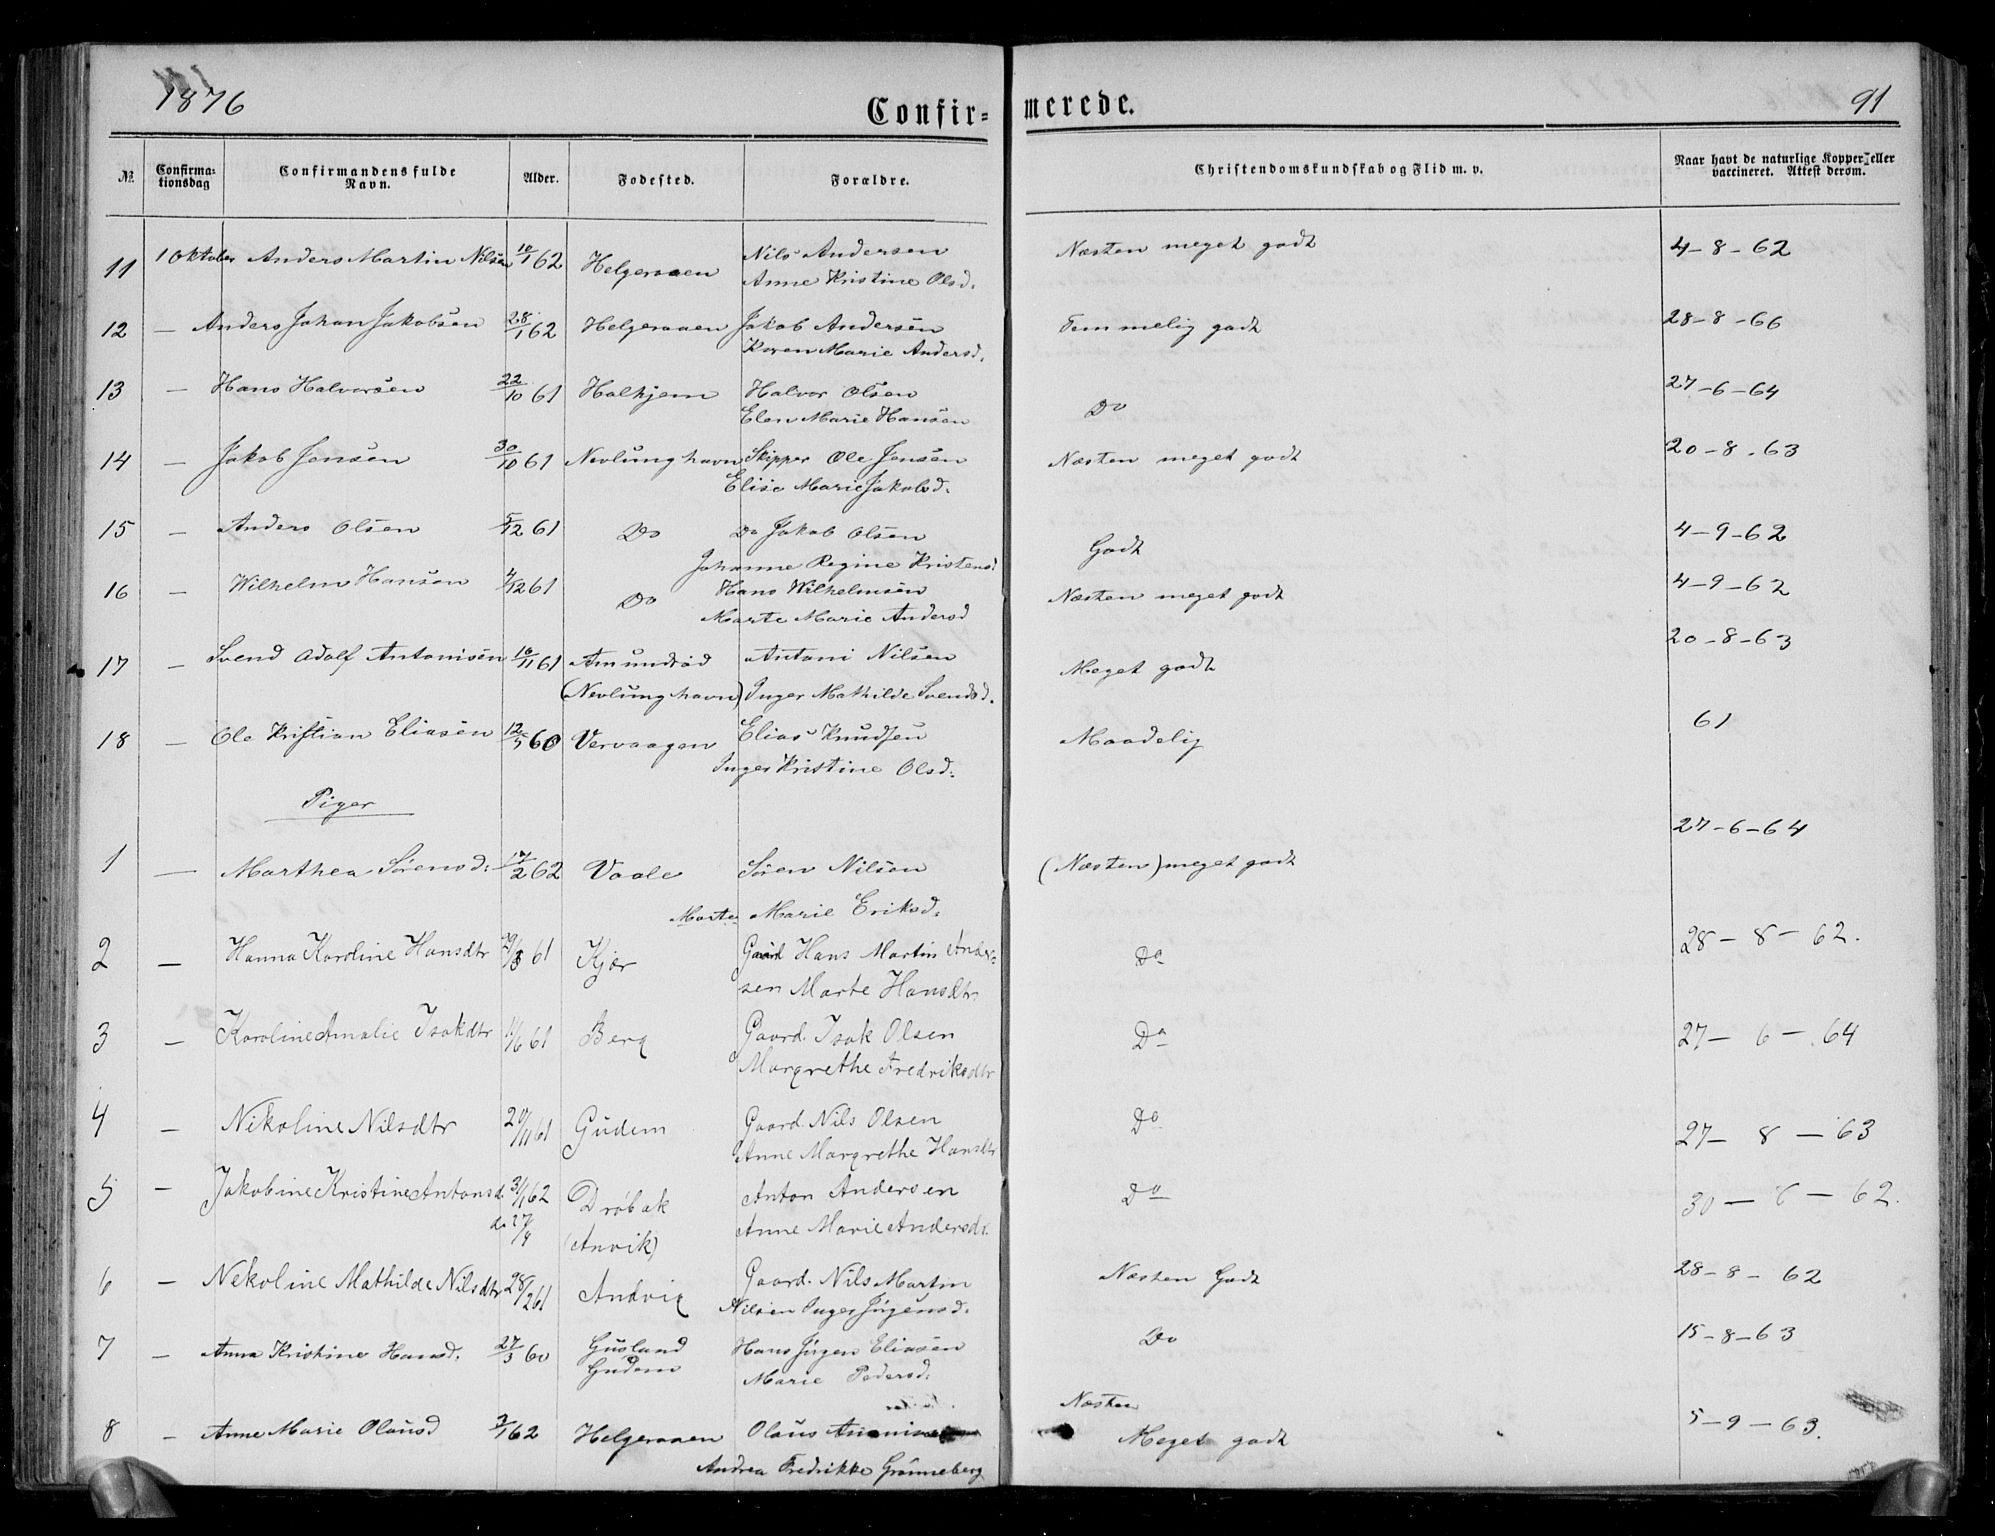 1876
Confir=
merede.
91
№.
Confirma=
tionsdag
Confirmandens fulde
Navn.
Alder.
Fødested.
Forældre.
Christendomskundskab og Flid m. v.
Naar havt de naturlige Kopper eller
vaccineret. Attest derom.
11 1 Oktober Anders Martin Nilsen 10/1 62 Helgeraaen Nils Andersen Næsten meget godt 4-8-62
Anne Kristine Olsd.
12 — Anders Johan Jakobsen 28/1 62 Helgeraaen Jakob Andersen Temmelig godt 28-8-66
Karen Marie Andersd.
13 — Hans Halvorsen 22/10 61 Halhjem Halvor Olsen Do 27-6-64
Elen Marie Hansen
14 — Jakob Jensen 30/10 61 Nevlunghavn Skipper Ole Jensen Næsten meget godt 20-8-63
Elise Marie Jakobsd.
15 — Anders Olsen 5/12 61 Do Do Jakob Olsen Godt 4-9-62
Johanne Regine Kristensd
16 — Wilhelm Hansen 4/12 61 Do Hans Wilhelmsen Næsten meget godt 4-9-62
Marte Marie Andersd
17 — Svend Adolf Antonisen 16/11 61 Amundrød Antoni Nilsen Meget godt 20-8-63
(Nevlunghavn) Inger Mathilde Svendsd.
18 — Ole Kristian Eliasen 12/5 60 Vervaagen Elias Knudsen Maadelig 61
Inger Kristine Olsd.
Piger
1 — Marthea Sørensd: 17/2 62 Vaale Søren Nilsen (Næsten) meget godt 27-6-64
Marte Marie Eriksd.
2 — Hanna Karoline Hansdtr 29/8 61 Kjær Gaard Hans Martin Ander= Do 28-8-62.
sen Marte Hansdtr
3 — Karoline Amalie Isakdtr 11/6 61 Berg Gaard. Isak Olsen Do 27-6-64
Margrethe Fredriksdtr
4 — Nikoline Nilsdtr 20/11 61 Gudem Gaard. Nils Olsen Do 27-8-63
Anne Margrethe Hansdtr
5 — Jakobine Kristine Antonsd. 3/1 62 Drøbak Anton Andersen Do 30-6-62.
d. 27/4 (Anvik) Anne Marie Andersdr.
6 — Nekoline Mathilde Nilsdtr 28/2 61 Andvig Gaard. Nils Martin Næsten Godt 28-8-62
Nilsen Inger Jørgensd.
7 — Anna Kristine Hansd. 27/3 60 Gusland Hans Jørgen Eliasen Do 15-8-63
Gudem Marie Pedersd.
Næsten
8 — Anne Marie Olausd 3/1 62 Helgeraaen Olaus Meget godt 5-9-63.
Andrea Fredrikke Grønneberg